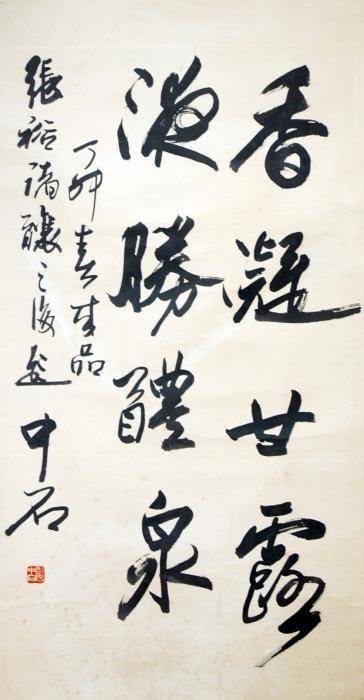 香凝甘露
液勝醴泉
丁卯春來品
張裕瑞釀之後題 中石